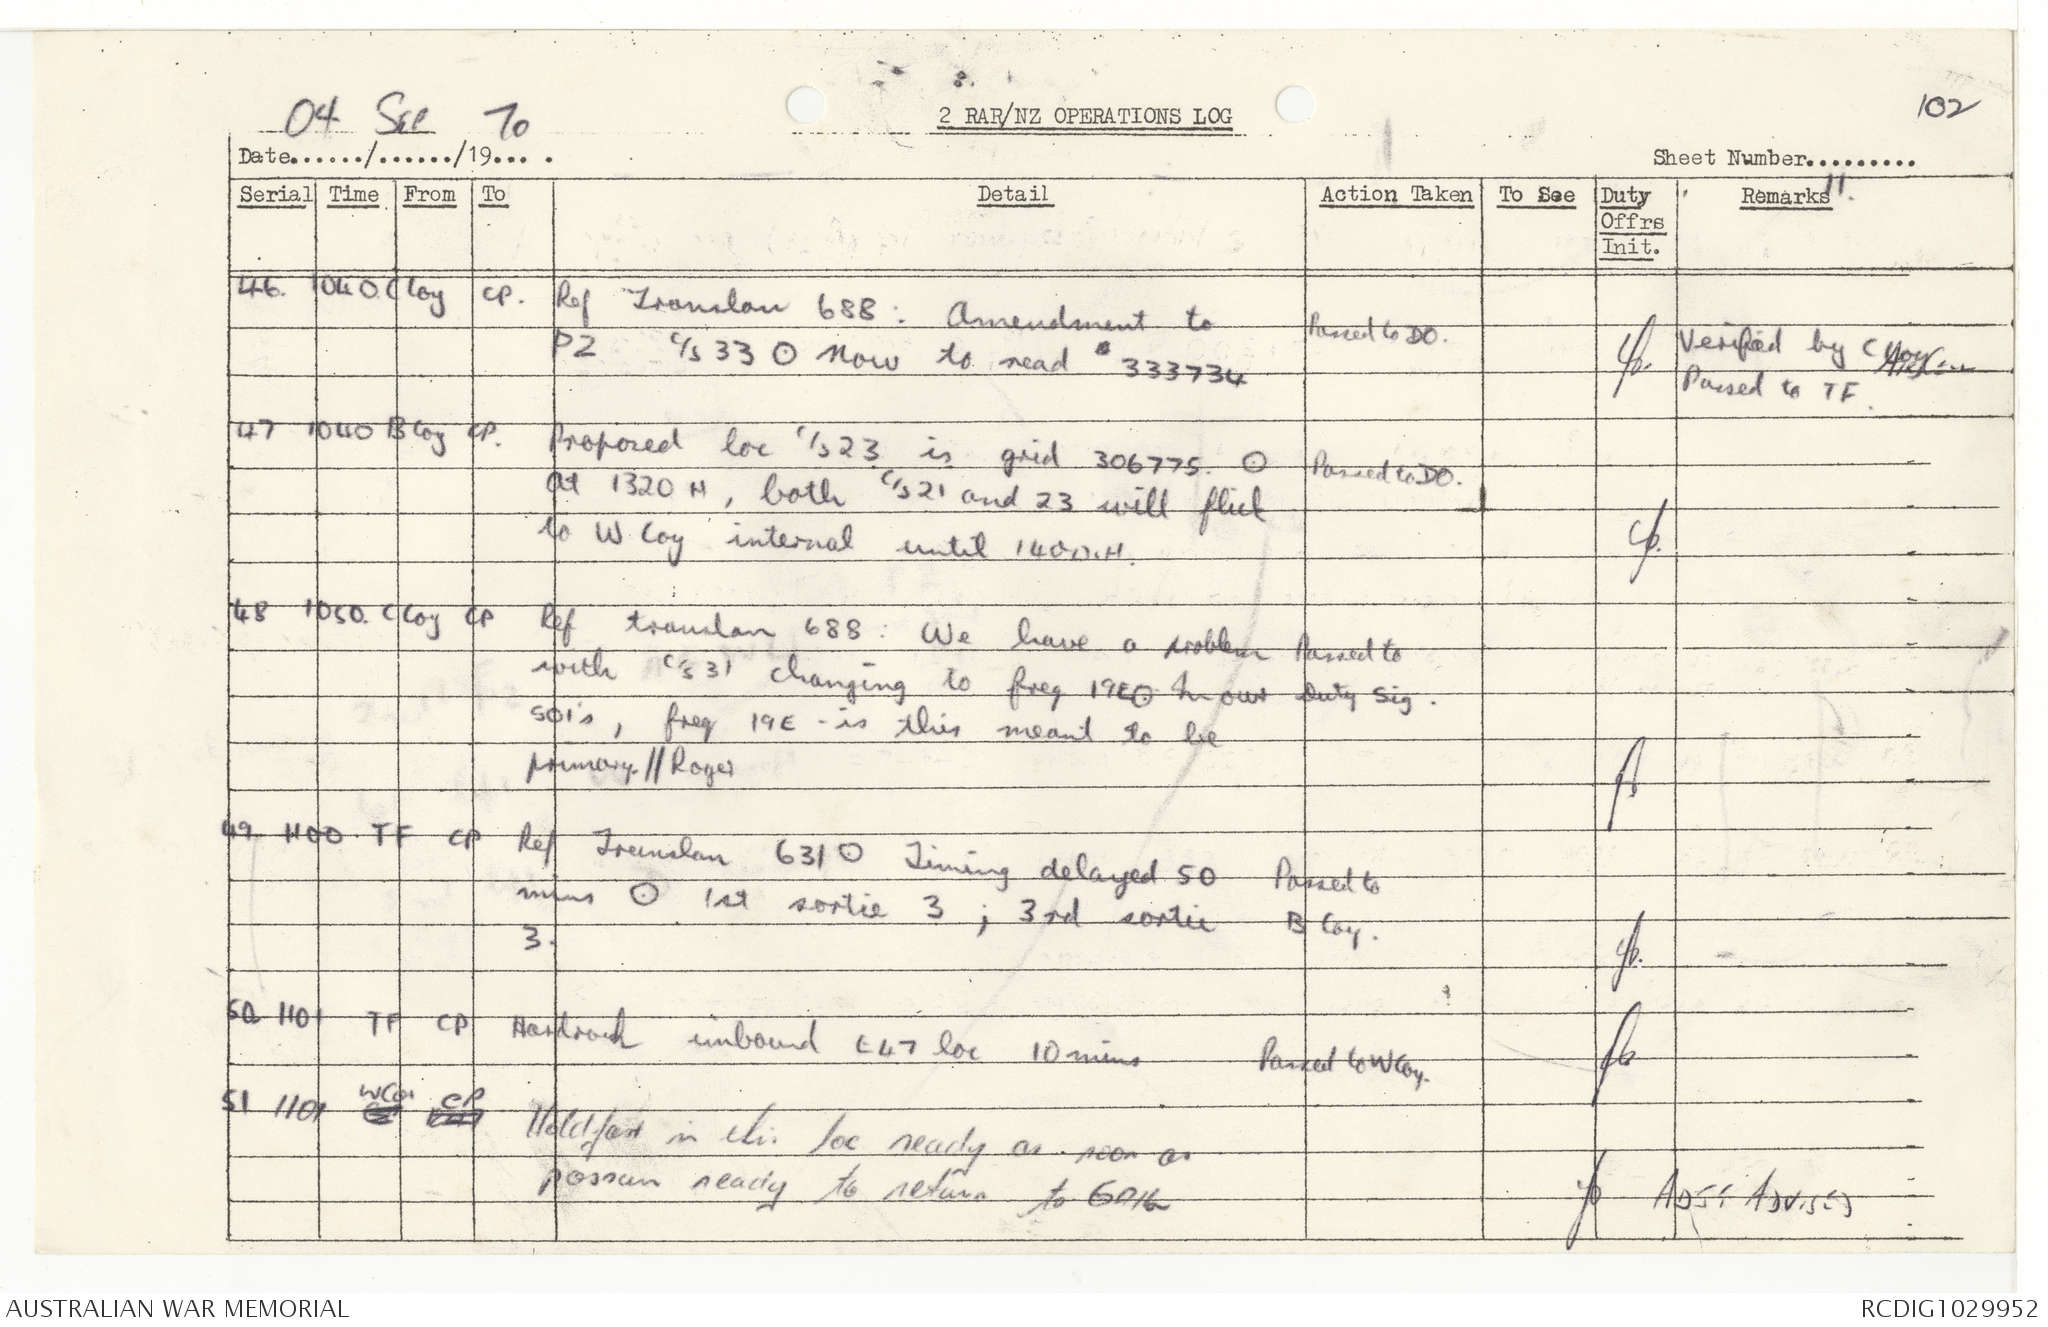 102
04 Sep 70
2 RAR/NZ OPERATIONS LOG
Date....../....../19... .
Sheet Number.........
11.
Serial Time From To Detail Action Taken To See Duty Offrs Init. Remarks
46. 1040. C Coy CP. Ref Translan 688: Amendment to
P2 C/S 33 ⊙ Now to read 333734
Passed to DO.
Verified by C Coy
Passed to TF.
47 1040 B Coy CP. Proposed loc C/S 23 is grid 306775. ⊙
At 1320 H, both C/S 21 and 23 will flick
to W Coy internal until 1400H.
Passed to DO.
48 1050. C Coy CP Ref translan 688: We have a problem
with C/S 31 changing to freq 19E⊙ In our
SOI's, freq 19E - is this meant to be
primary.//Roger
Passed to
Duty Sig.
49 1100 TF CP Ref Translan 631⊙ Timing delayed 50
mins ⊙ 1st sortie 3; 3rd sortie
3.
Passed to
B Coy.
50 1101 TF CP Hardrock inbound E47 loc 10 mins
Passed to W Coy.
51 1101 W Coy CP Holdfast in this loc ready as soon as
possum ready to return to
ADJT ADVISED
AUSTRALIAN WAR MEMORIAL
RCDIG1029952